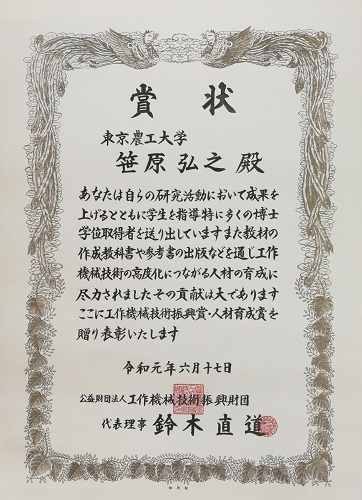 賞状
東京農工大学
笹原弘之殿
あなたは自らの研究活動において成果を
上げるとともに学生を指導特に多くの博士
学位取得者を送り出していますまた教材の
作成教科書や参考書の出版などを通じ工作
機械技術の高度化につながる人材の育成に
尽力されましたその貢献は大であります
ここに工作機械技術振興賞・人材育成賞を
贈り表彰いたします
令和元年六月十七日
公益財団法人工作機械技術振興財団
代表理事 鈴木直道